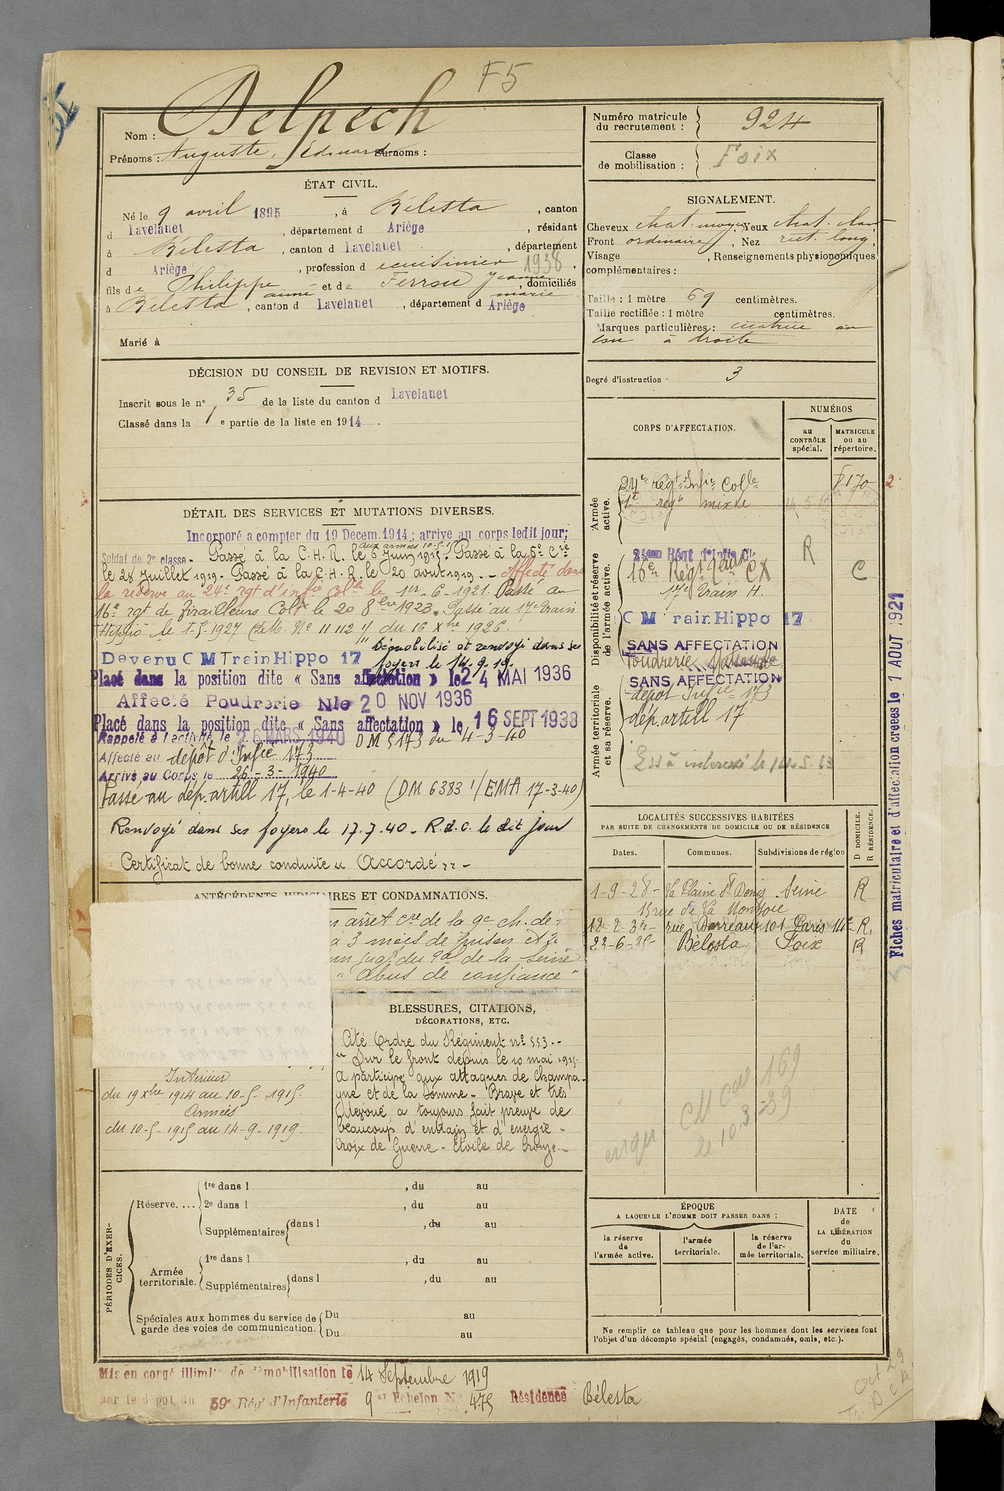 F5
Nom : Delpech
Prénoms : Auguste, Edouard Surnoms :
Numéro matricule du recrutement : 924
Classe de mobilisation : Foix
ÉTAT CIVIL.
Né le 9 avril 1895, à Bélesta, canton
d Lavelanet, département d Ariège, résidant
à Bélesta, canton d Lavelanet, département
d Ariège, profession d cuisinier 1938.
fils de Philippe aimé et de Ferrou Jeanne marie, domiciliés
à Bélesta, canton d Lavelanet, département d Ariège
Marié à
SIGNALEMENT.
Cheveux chat. moyen Yeux chat. clair
Front ordinaire, Nez rect. long,
Visage , Renseignements physionomiques
complémentaires :
Taille : 1 mètre 69 centimètres.
Taille rectifiée : 1 mètre centimètres.
Marques particulières : cicatrice au
cou à droite
Degré d'instruction : 3
DÉCISION DU CONSEIL DE REVISION ET MOTIFS.
Inscrit sous le n° 35 de la liste du canton d Lavelanet
Classé dans la 1e partie de la liste en 1914.
DÉTAIL DES SERVICES ET MUTATIONS DIVERSES.
Incorporé a compter du 19 Décem.1914; arrivé au corps ledit jour;
aux armées 10-5-15
Soldat de 2e classe. Passé à la C.H.R. le 6 Juin 1915. Passé à la 5e Cie
le 28 Juillet 1919. Passé à la C.H.R. le 20 août 1919. - Affecté dans
la réserve au 24e rgt d'infie Colle le 1er-6-1921. Passé au
16e rgt de Tirailleurs Colx le 20 8bre 1923. Passé au 17e Train
Hippo le 1-5-1927 du 16 Xbre 1926.
Démobilisé et renvoyé dans ses
foyers le 14.9.19.
Devenu C M Train Hippo 17
Placé dans la position dite « Sans affectation » le 24 MAI 1936
Affecté Poudrerie Nle 20 NOV 1936
Placé dans la position dite « Sans affectation » le 16 SEPT 1938
Rappelé à l'activité le 26 MARS 1940 DM 5173 du 4-3-40
Affecté au dépôt d'Infie 173
Arrivé au Corps le 26-3-1940
Passé au dép. artill 17, le 1-4-40 (DM 6383 1/EMA 17-3-40)
Renvoyé dans ses foyers le 17.7.40. R.d.c. le dit jour
Certificat de bonne conduite « Accordé »
ANTÉCÉDENTS JUDICIAIRES ET CONDAMNATIONS.
arrêt Cre de la 9e ch. de
à 3 mois de prison et
jugt du de la Seine
"Abus de confiance"
Intérieur
du 19 Xbre 1914 au 10-5-1915.
Armées
du 10-5-1915 au 14-9-1919.
BLESSURES, CITATIONS,
DÉCORATIONS, ETC.
Cité Ordre du Régiment n° 553.-
"Sur le front depuis le 10 mai 1915.
A participé aux attaques de Champa-
gne et de la Somme - Brave et très
dévoué a toujours fait preuve de
beaucoup d'entrain et d'énergie -
Croix de Guerre - Etoile de bronze -
CORPS D'AFFECTATION.
NUMÉROS
au CONTRÔLE spécial.
MATRICULE ou au répertoire.
Armée active.
24e régt Infie Colle 8170
1er régt mixte
Disponibilité et réserve de l'armée active.
24ème Régt d'Infie Cle R
16e Régt Tiraurs CX C
17e Train H.
C M Train Hippo 17
SANS AFFECTATION
Poudrerie Nationale
SANS AFFECTATION
Armée territoriale et sa réserve.
dépôt Infie 173
dép. artill 17
LOCALITÉS SUCCESSIVES HABITÉES
PAR SUITE DE CHANGEMENTS DE DOMICILE OU DE RÉSIDENCE
Dates. Communes. Subdivisions de région D DOMICILE. R RÉSIDENCE.
1-9-28- La Plaine St Denis Seine R
13 rue de la Montjoie
12-2-34- rue Barreau 101 Paris 14e R.
Bélesta Foix R
CM 169
le 10.3.39
PÉRIODES D'EXERCICES.
Réserve.... 1re dans l , du au
2e dans l , du au
Supplémentaires dans l , du au
Armée territoriale. 1re dans l , du au
Supplémentaires dans l , du au
Spéciales aux hommes du service de garde des voies de communication. Du au
Du au
ÉPOQUE
A LAQUELLE L'HOMME DOIT PASSER DANS :
la réserve de l'armée active.
l'armée territoriale.
la réserve de l'armée territoriale.
DATE de LA LIBÉRATION du service militaire.
Ne remplir ce tableau que pour les hommes dont les services font
l'objet d'un décompte spécial (engagés, condamnés, omis, etc.).
Mis en congé illimité de démobilisation le 14 Septembre 1919
par le dépôt du 59e Régt d'Infanterie 9e Echelon No 475 Résidence Bélesta
Fiches matriculaire et d'affectation créées le 1 AOUT 1921